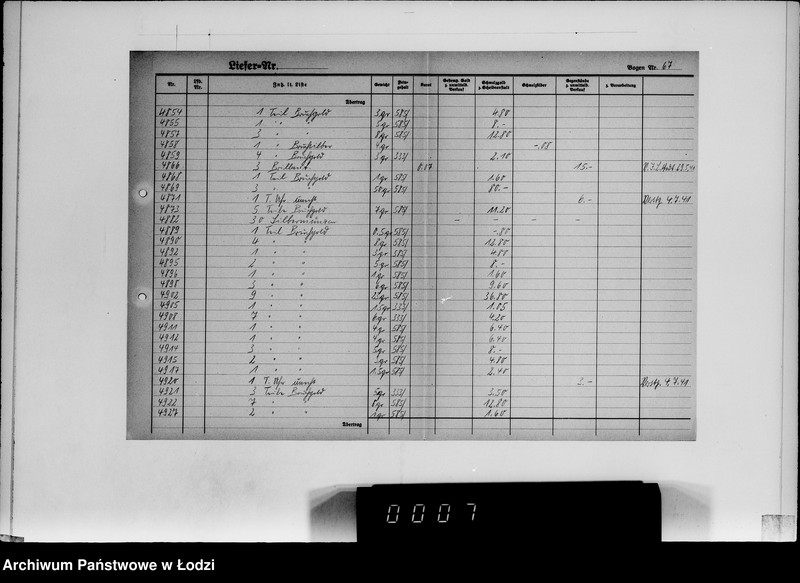 Liefer=Nr.
Bogen Nr. 67
Nr. Lfd. Nr. Inh. lt. Liste Gewicht Fein-gehalt Karat Gestemp. Gold z. unmittelb. Verkauf Schmelzgold z. Scheideanstalt Schmelzsilber Gegenstände z. unmittelb. Verkauf z. Verwertung
Übertrag
4854 1 Teil Bruchgold 3 gr 585/ 4.80
4855 1 " " 5 gr 585/ 8.-
4857 3 " " 8 gr 585/ 12.80
4858 1 " Bruchsilber 4 gr -.08
4859 4 " Bruchgold 3 gr 333/ 2.10
4866 3 Brillant 0.17 15.-
4868 1 Teil Bruchgold 1 gr 585/ 1.60
4869 3 " " 50 gr 585/ 80.-
4871 1 T. Uhr 6.- 4.7.41
4873 5 Teile Bruchgold 7 gr 585/ 11.20
4882 30 Silbermünzen - - - -
4889 1 Teil Bruchgold 0.5 gr 585/ -.80
4890 4 " " 8 gr 585/ 12.80
4892 1 " " 3 gr 585/ 4.80
4895 2 " " 5 gr 585/ 8.-
4896 1 " " 1 gr 585/ 1.60
4898 3 " " 6 gr 585/ 9.60
4902 9 " " 23 gr 585/ 36.80
4905 1 " " 1.5 gr 333/ 1.05
4908 7 " " 6 gr 333/ 4.20
4911 1 " " 4 gr 585/ 6.40
4912 1 " " 4 gr 585/ 6.40
4914 3 " " 5 gr 585/ 8.-
4915 2 " " 3 gr 585/ 4.80
4917 1 " " 1.5 gr 585/ 2.40
4920 1 T. Uhr 3.- 4.7.41
4921 3 Teile Bruchgold 5 gr 333/ 3.50
4922 7 " " 8 gr 585/ 12.80
4927 2 " " 1 gr 585/ 1.60
Übertrag
0007
Archiwum Państwowe w Łodzi